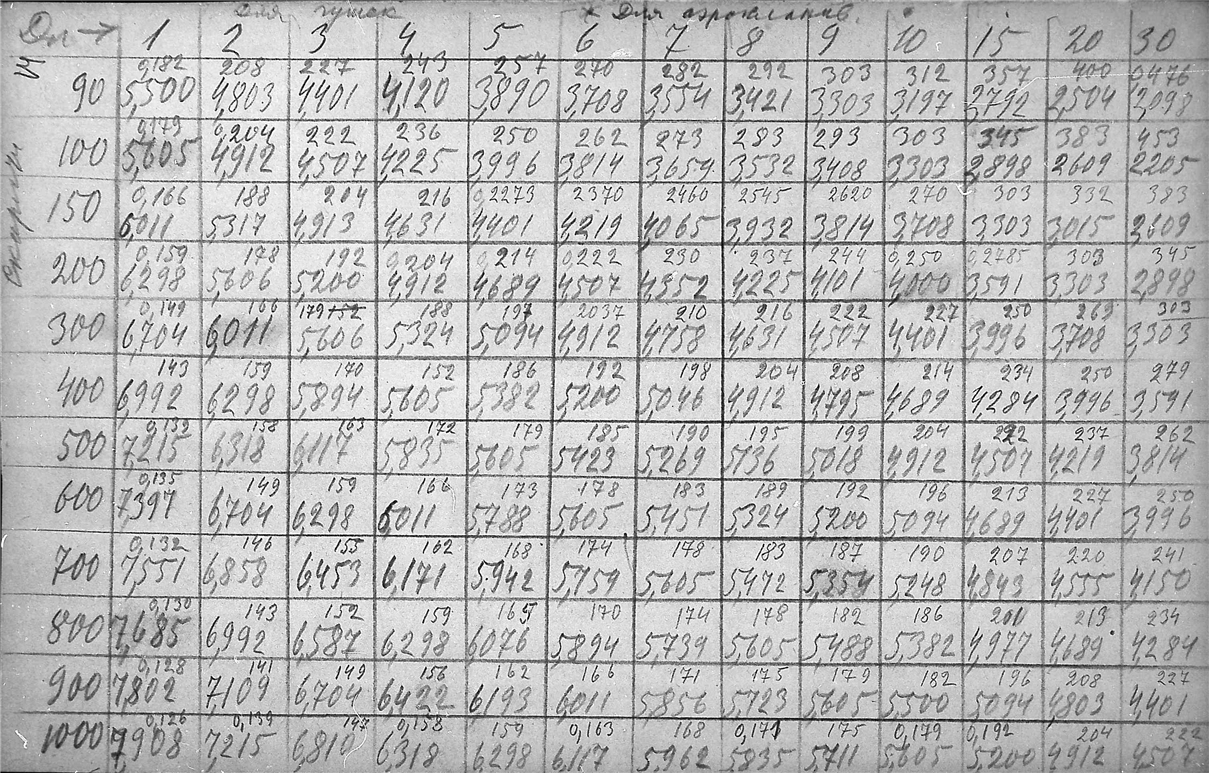 для пушек * Для аэропланов.
Dп → 1 2 3 4 5 6 7 8 9 10 15 20 30
0,182 208 227 243 257 270 282 292 303 312 357 400 0,476
90 5,500 4,803 4,401 4,120 3,890 3,708 3,554 3,421 3,303 3,197 2,792 2,504 2,098
0,179 0,204 222 236 250 262 273 283 293 303 345 383 453
100 5,605 4,912 4,507 4,225 3,996 3,814 3,654 3,532 3,408 3,303 2,898 2,609 2,205
0,166 188 204 216 0,2273 2370 2460 2545 2620 270 303 332 383
150 6,011 5,317 4,913 4,631 4,401 4,219 4,065 3,932 3,814 3,708 3,303 3,015 2,609
0,159 178 192 0,204 0,214 0,222 230 237 244 0,250 0,2785 303 345
200 6,298 5,606 5,200 4,912 4,689 4,507 4,352 4,225 4,101 4,000 3,591 3,303 2,898
0,149 166 179 152 188 197 2037 210 216 222 227 250 269 303
300 6,704 6,011 5,606 5,324 5,094 4,912 4,758 4,631 4,507 4,401 3,996 3,708 3,303
143 159 170 152 186 192 198 204 208 214 234 250 279
400 6,992 6,298 5,894 5,605 5,382 5,200 5,046 4,912 4,795 4,689 4,284 3,996 3,591
0,139 158 163 172 179 185 190 195 199 204 222 237 262
500 7,215 6,318 6,117 5,835 5,605 5,423 5,269 5,136 5,018 4,912 4,507 4,219 3,814
0,135 149 159 166 173 178 183 189 192 196 213 227 250
600 7,397 6,704 6,298 6,011 5,788 5,605 5,451 5,324 5,200 5,094 4,689 4,401 3,996
0,132 146 155 162 168 174 178 183 187 190 207 220 241
700 7,551 6,858 6,453 6,171 5,942 5,759 5,605 5,472 5,354 5,248 4,843 4,555 4,150
0,130 143 152 159 165 170 174 178 182 186 201 213 234
800 7,685 6,992 6,587 6,298 6,076 5,894 5,739 5,605 5,488 5,382 4,977 4,689 4,284
0,128 141 149 156 162 166 171 175 179 182 196 208 227
900 7,802 7,109 6,704 6,422 6,193 6,011 5,856 5,723 5,605 5,500 5,094 4,803 4,401
0,126 0,139 147 0,158 159 0,163 168 0,171 175 0,179 0,192 204 222
1000 7,908 7,215 6,810 6,318 6,298 6,117 5,962 5,835 5,711 5,605 5,200 4,912 4,507